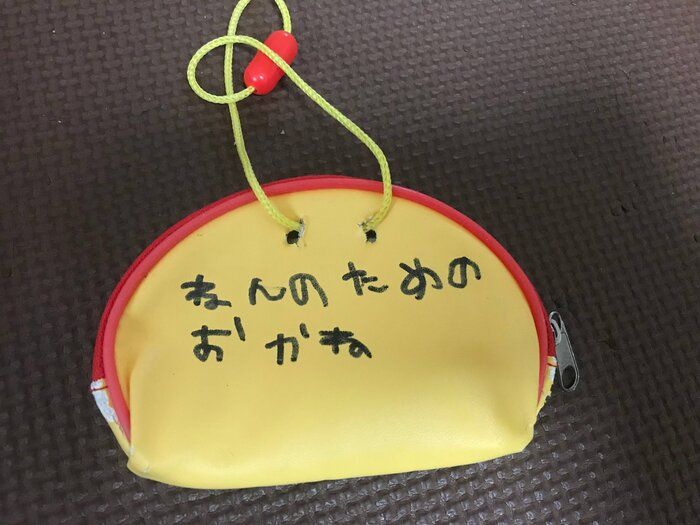 ねんのための
おかね